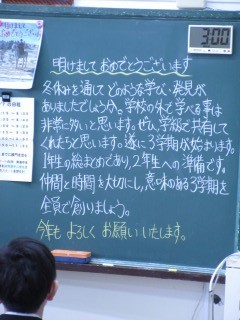 3:00
明けまして おめでとうございます
冬休みを通して どのような学び・発見が
ありましたでしょうか。学校の外で学べる事は
非常に多いと思います。ぜひ、学級で共有して
くれたらと思います。遂に3学期が始まります。
1年生の総まとめであり、2年生への準備です。
仲間と時間を大切にし、意味のある3学期を
全員で創りましょう。
今年も よろしく お願い いたします。